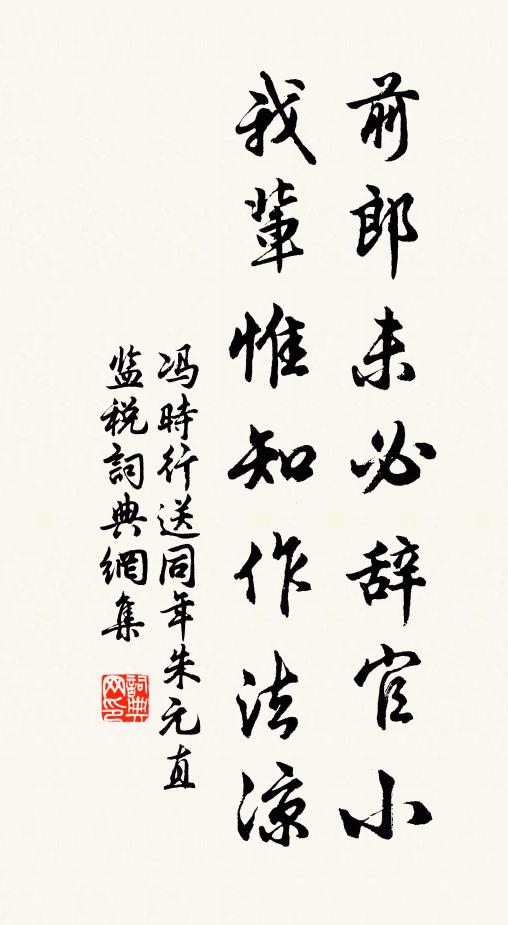 前郎未必辞官小
我輩惟知作法凉
冯時行送同年朱元直
监税詞典網集
詞典网印